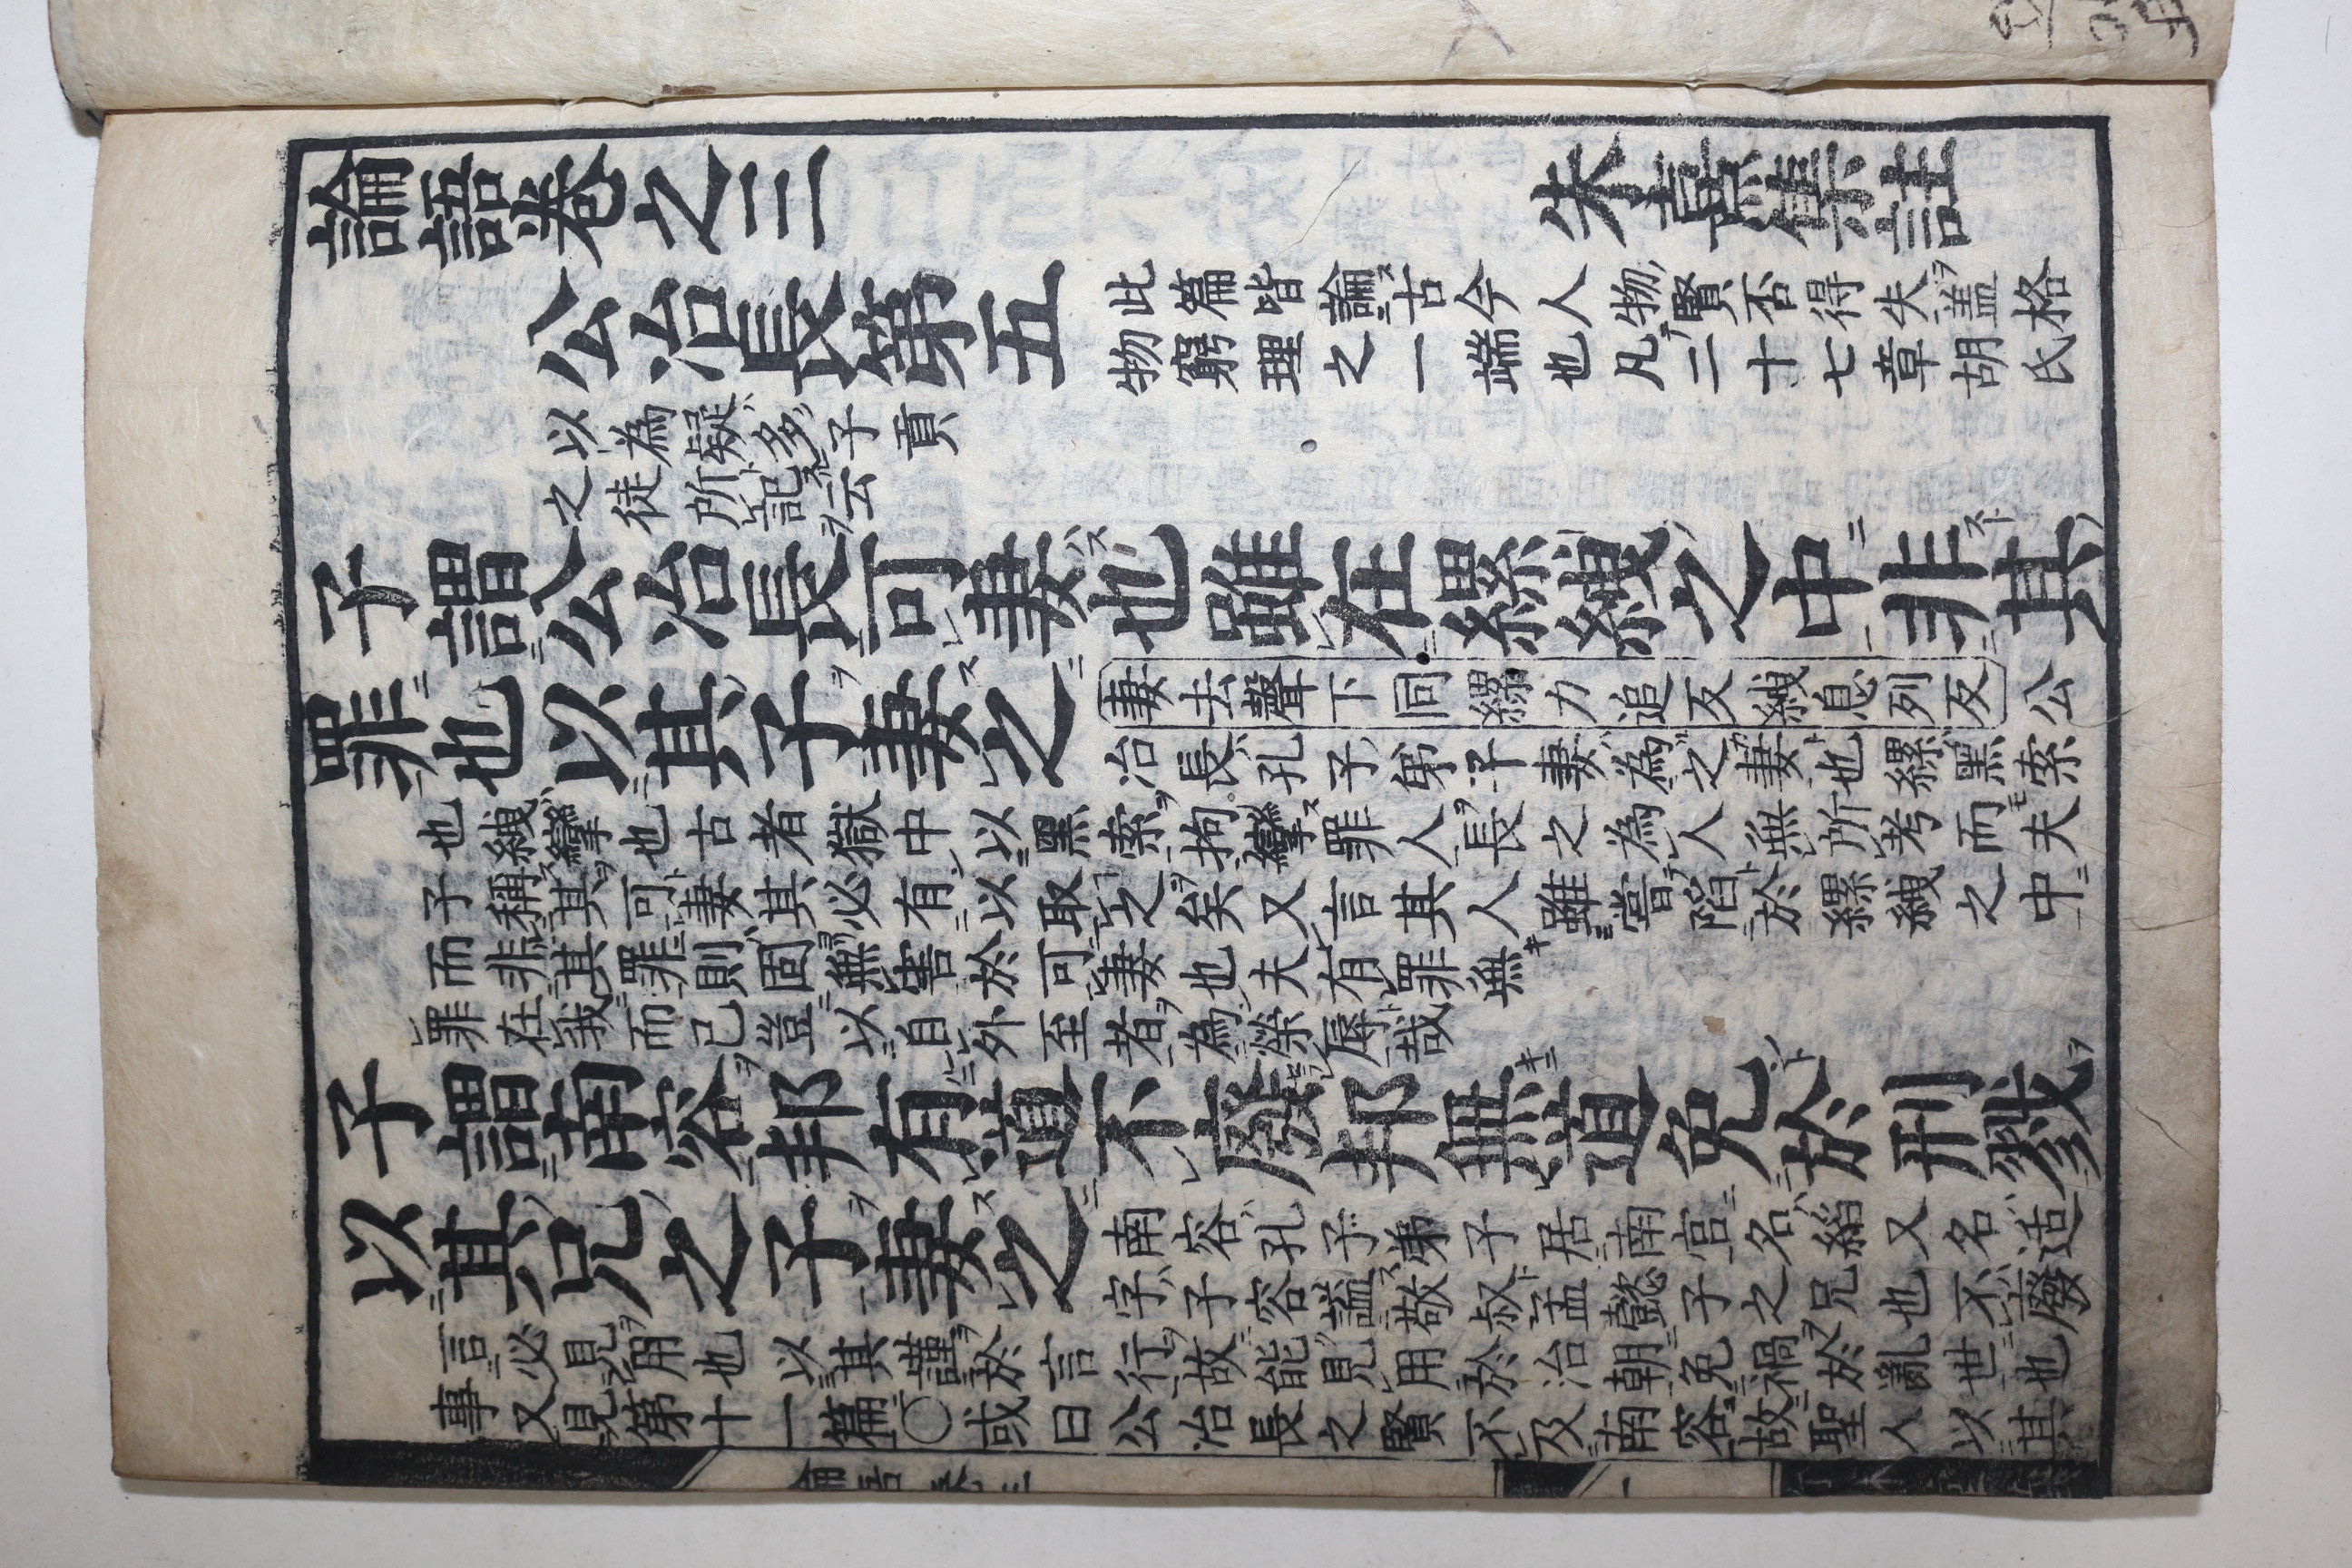 論語卷之三
朱熹集註
公冶長第五
此篇皆論古今人物賢否得失盖格
物窮理之一端也凡二十七章胡氏
以為疑多子貢
之徒所記云
子謂公冶長可妻也雖在縲絏之中非其
罪也以其子妻之
妻去聲下同縲力追反絏息列反公
冶長孔子弟子妻為之妻也縲黑索
也絏攣也古者獄中以黑索拘攣罪人長之為人無所考而夫
子稱其可妻其必有以取之矣又言其人雖嘗陷於縲絏之中
而非其罪則固無害於可妻也夫有罪無
罪在我而已豈以自外至者為榮辱哉
子謂南容邦有道不廢邦無道免於刑戮
以其兄之子妻之
南容孔子弟子居南宮名縚又名适
字子容謚敬叔孟懿子之兄也不廢
言必見用也以其謹於言行故能見用於治朝免禍於亂世也
事又見第十一篇○或曰公冶長之賢不及南容故聖人以其